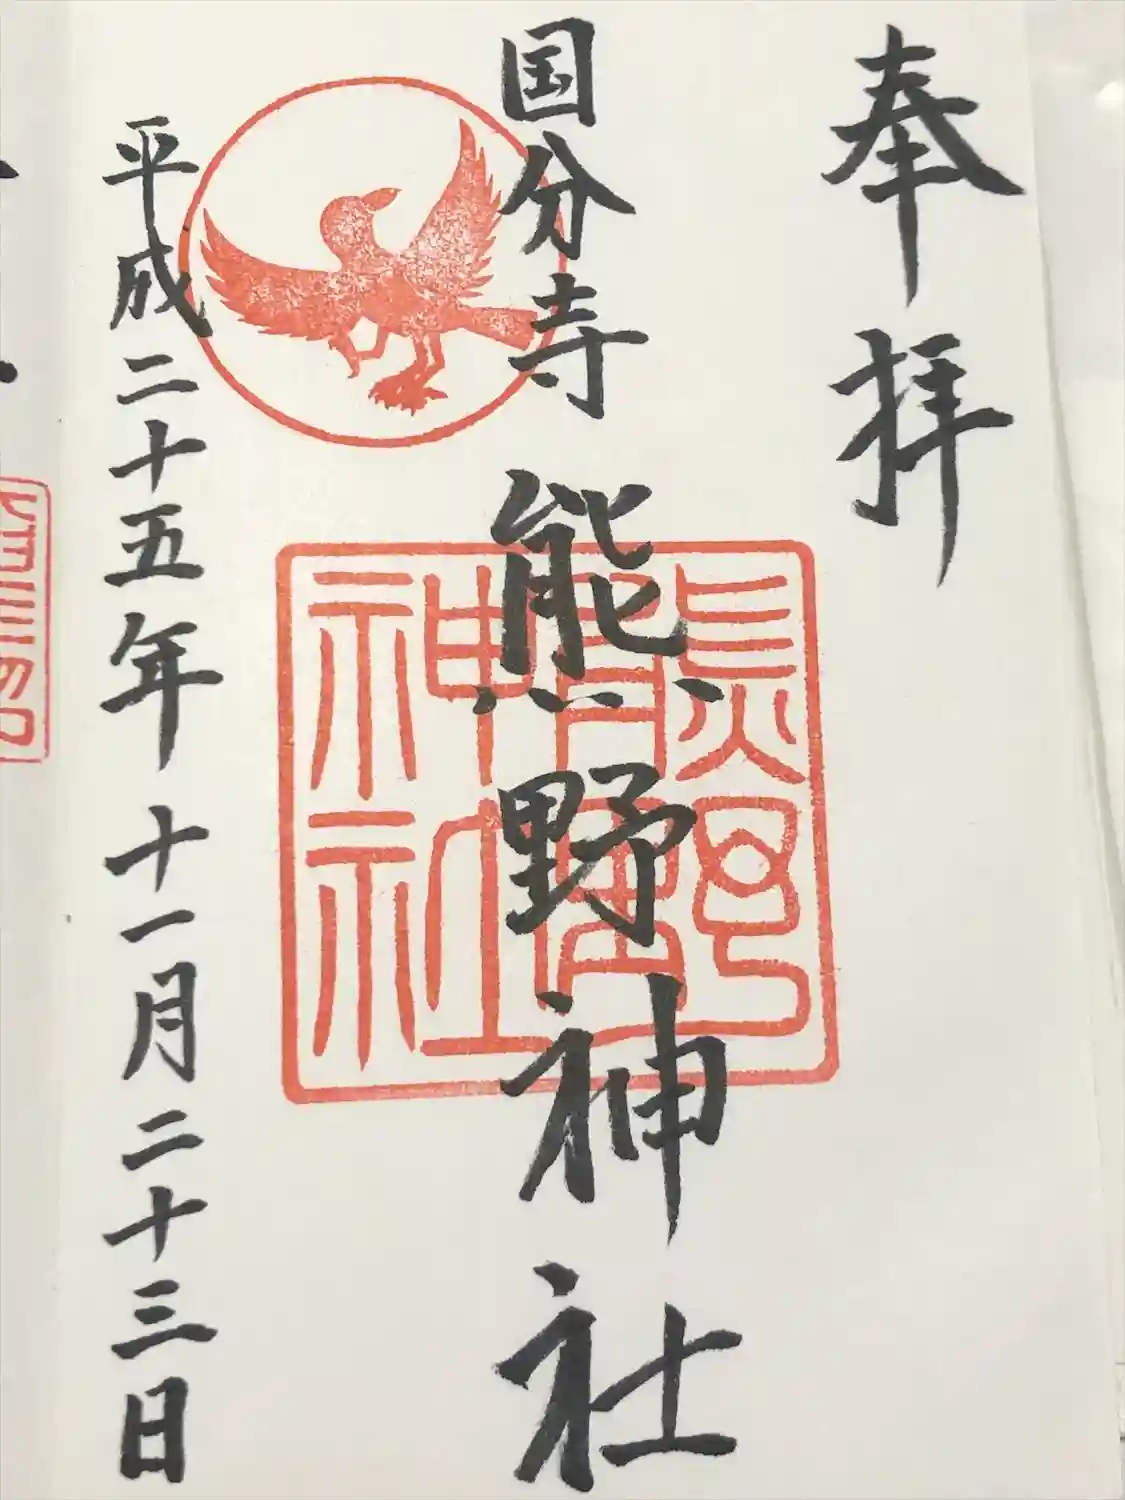 奉拝
国分寺 熊野神社
熊野神社
平成二十五年十一月二十三日